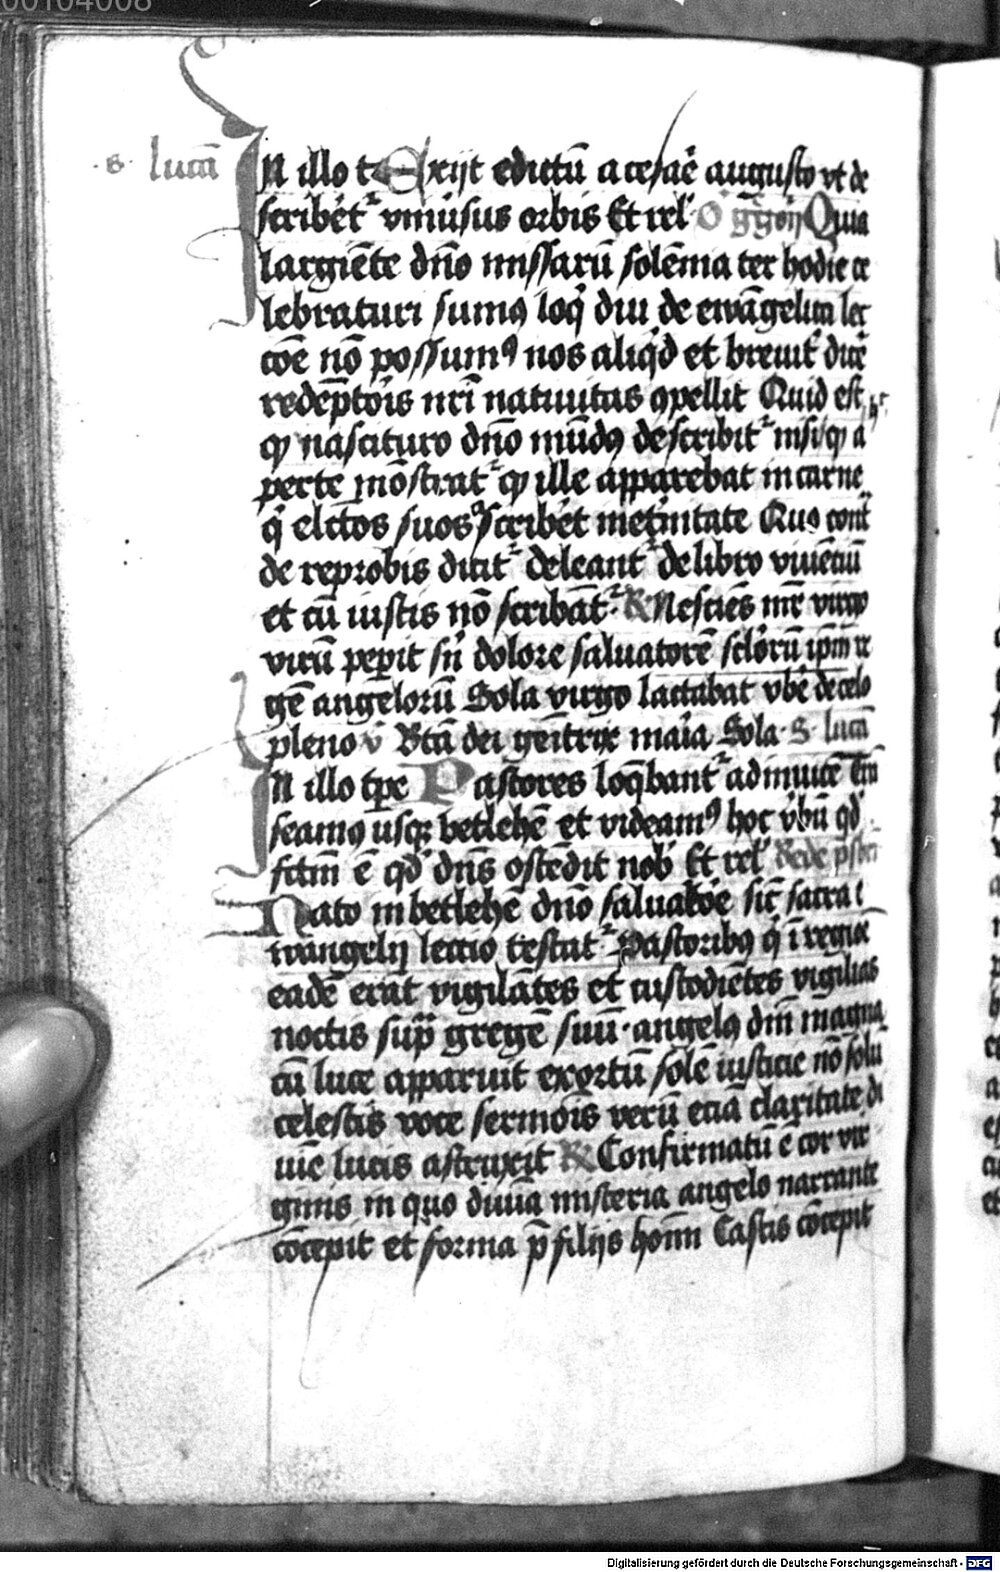 00104008
·s· lucā
In illo t Exijt edictū a cesaē augusto vt de
scribet᷑ vniūsus orbis Et rel' O ggoij Quia
largiēte dn̄o missarū solēnia ter hodie ce
lebraturi sumꝯ loq̇ diu de ewāgelica lec
cōe nō possumꝯ nos aliq̇d et breuit᷑ dicē
redēptōis nr̄i natiuitas ꝯpellit Quid est
ꝙ nascituro dn̄o mūdꝯ describit᷑ nisi ꝙ a
perte mōstrat᷑ ꝙ ille apparebat in carne
q̇ elc̄tos suos scribet in et̓nitate Quo cont̄
de reprobis dicit᷑ deleant᷑ de libro viuēciū
et cū iustis nō scribāt᷑ ℟ Nesciēs mr̄ virgo
virū pep̱it sn̄ dolore saluatorē sclor̓ū ip̄m re
gē angelorū Sola virgo lactabat vbe de celo
pleno v̓ Btā dei geītrix maīa Sola S· lucā
In illo tp̄e Pastores loq̄bant᷑ ad inuicē Trā
seamꝯ usqꝫ betlehē et videamꝯ hoc v̓bū qd̓
fctm̄ ē qd̓ dn̄s ostēdit nob̓ Et rel' Bede psbri
Nato in betlehē dn̄o saluatōe sic̄ sacra
ewangelij lectio testat᷑ Pastoribꝯ q̇ ī regiōe
eadē erāt vigilātes et custodiētes vigilias
noctis sup̄ gregē suū · angelꝯ dn̄i magna
cū luce apparuit exortū solē iusticie nō solū
celestis voce sermōis verū eciā claritate di
uīe lucis astruxit ℟ Confirmatū ē cor vir
ginis in quo diuīa misteria angelo narrante
cōcepit et forma p̄ filijs hoīm Castis cōcepit
Digitalisierung gefördert durch die Deutsche Forschungsgemeinschaft - DFG